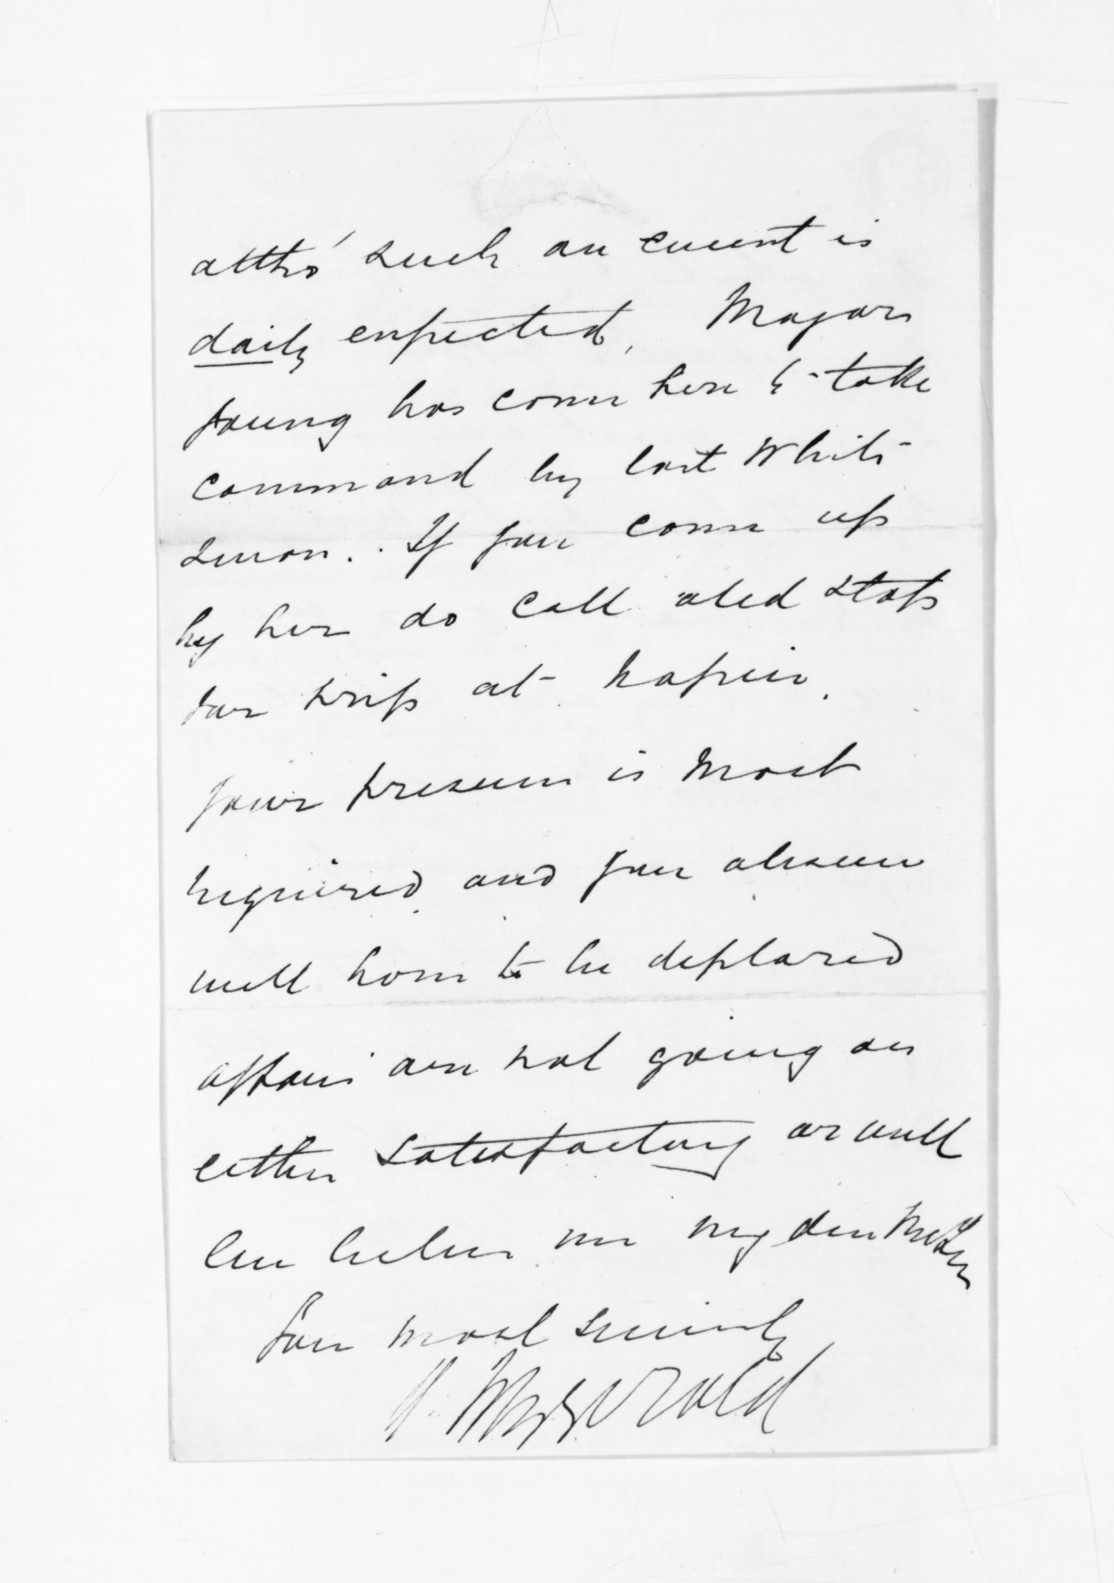 altho' such an event is
daily expected, Major
Young has come here to take
command by last White
swan. If you come up
by her do call and stop
your trip at Napier.
Your presence is most
required and your absence
will have to be deplored
affairs are not going on
either satisfactory or well
believe me my dear McLean
Your most sincerely
FitzGerald